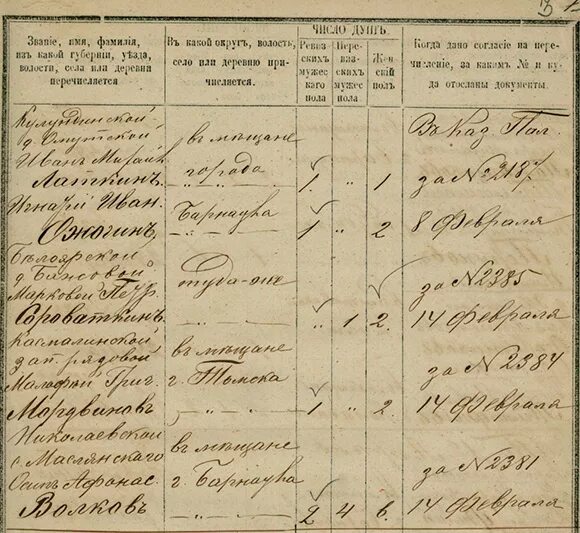 ЧИСЛО ДУШЪ.
Званіе, имя, фамилія,
изъ какой губерніи, уѣзда,
волости, села или деревни
перечисляется.
Въ какой округъ, волость,
село или деревню при-
числяется.
Ревиз-
скихъ
мужес
каго
пола
Пере-
визс-
кихъ
мужес
пола.
Жен-
скій
полъ
Когда дано согласіе на пере-
численіе, за какимъ № и ку-
да отосланы документы.
Кулундинской
д. Омутской
Иванъ Михай
Латкинъ
въ мѣщане
города
1. " 1
Въ Каз Пал.
за № 2187
Игнатій Иван
Ожогинъ
Барнаула
1 " 2
8 Февраля
Бѣлоярской
д.
Марковой Петр.
Сороваткинъ
туда-же
" 1 2.
за № 2385
14 Февраля
Касмалинской
зап. рядовой
Малафѣй Григ.
Мордвиновъ
въ мѣщане
г. Томска
1 " 2
за № 2384
14 Февраля
Николаевской
с. Маслянскаго
Осипъ Афанас.
Волковъ
въ мѣщане
г. Барнаула
2 4 6.
за № 2381
14 Февраля